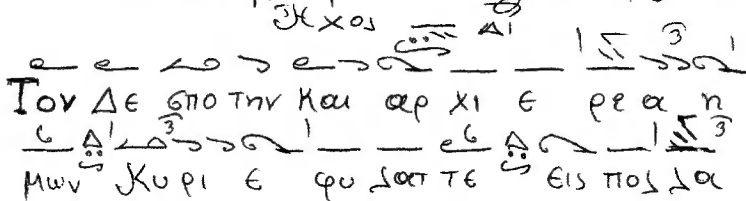 Ήχος Δι
Τον Δε σπο την και αρ χι ε ρε α η
μων Κυ ρι ε φυ λατ τε εις πολ λα